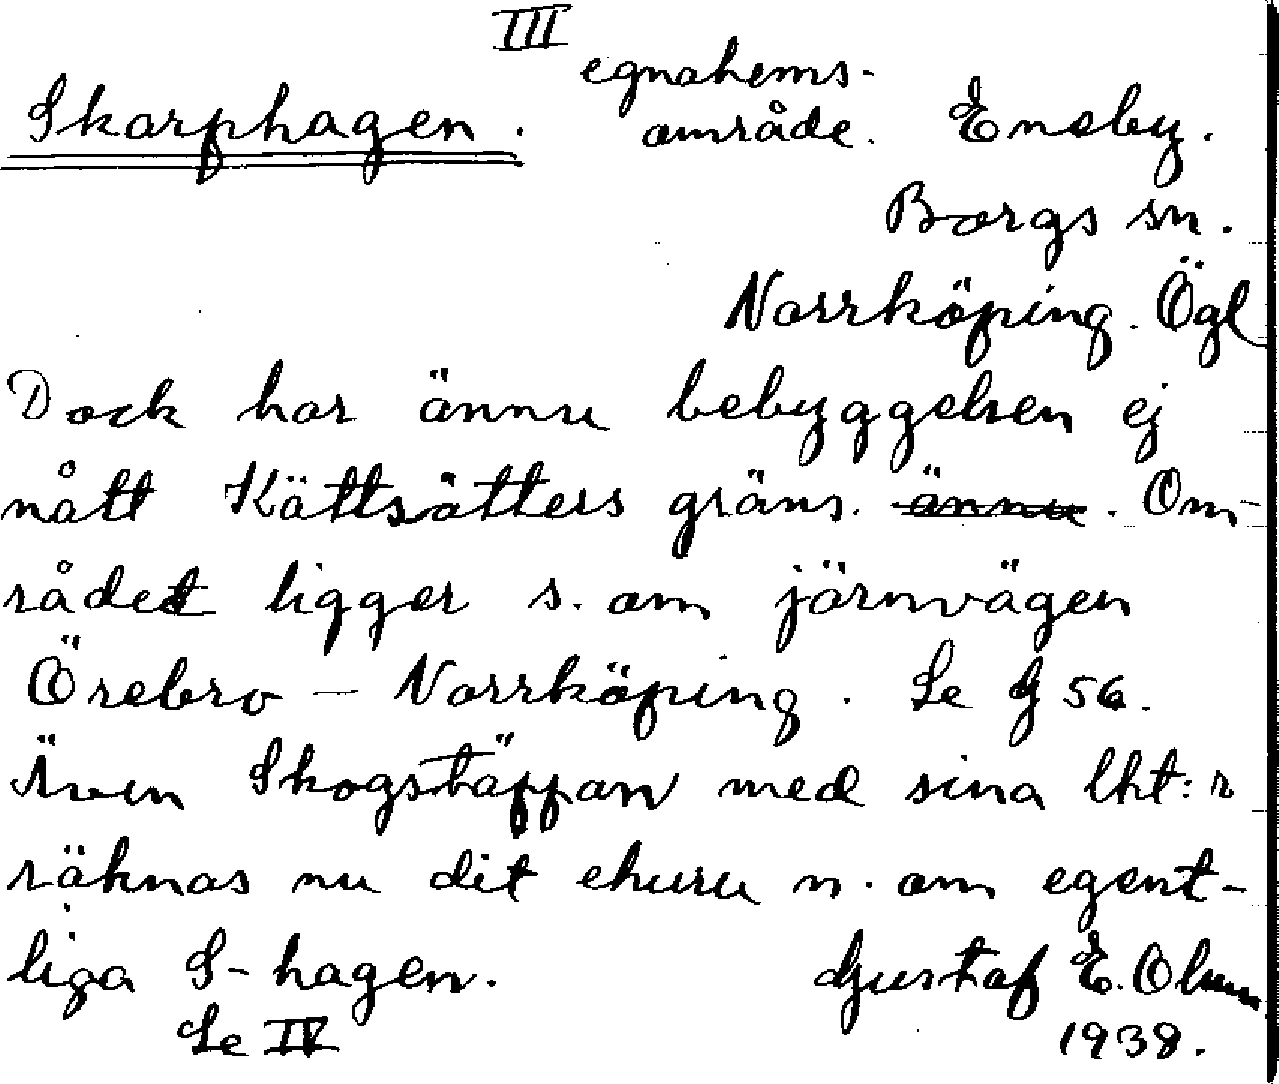 III
Skarphagen. egnahems-
område. Eneby.
Borgs sn.
Norrköping. Ögl
Dock har ännu bebyggelsen ej
nått Kättsätters gräns. ännu. Om-
rådet ligger s. om järnvägen
Örebro – Norrköping. Se G 56.
Även Skogstäppan med sina lht:r
räknas nu dit ehuru n. om egent-
liga S-hagen. Gustaf E. Olsson
Se IV 1938.